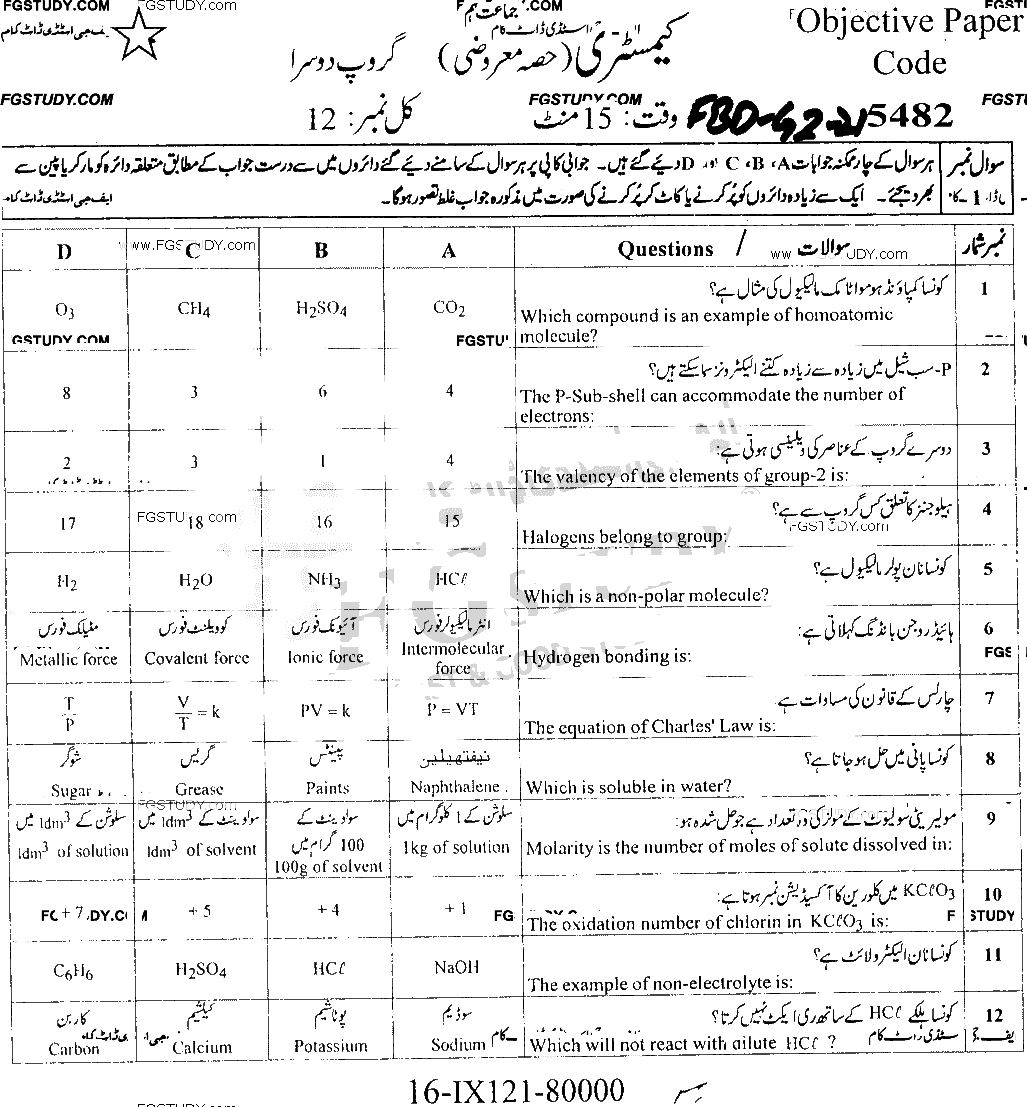 FGSTUDY.COM
جماعت نہم
.COM
FGSTU
Objective Paper
ایف جی اسٹڈی ڈاٹ کام
اسٹڈی ڈاٹ کام
کیمسٹری (حصہ معروضی)
گروپ دوسرا
Code
FGSTUDY.COM
FGSTUDY.COM
FGSTU
کل نمبر: 12
وقت: 15 منٹ
FBD-G2-21
5482
سوال نمبر 1
ہر سوال کے چار ممکنہ جوابات A، B، C اور D دیئے گئے ہیں۔ جوابی کاپی پر ہر سوال کے سامنے دیئے گئے دائروں میں سے درست جواب کے مطابق متعلقہ دائرہ کو مارکر یا پین سے
بھر دیجئے۔ ایک سے زیادہ دائروں کو پُر کرنے یا کاٹ کر پُر کرنے کی صورت میں مذکورہ جواب غلط تصور ہوگا۔
ایف جی اسٹڈی ڈاٹ کام
D C B A Questions / سوالات نمبر شمار
www.FGSTUDY.com
ww UDY.com
کونسا کمپاؤنڈ ہومواٹامک مالیکیول کی مثال ہے؟ 1
O₃ CH₄ H₂SO₄ CO₂ Which compound is an example of homoatomic
molecule?
GSTUDY.COM FGSTU
P-سب شیل میں زیادہ سے زیادہ کتنے الیکٹرونز سما سکتے ہیں؟ 2
8 3 6 4 The P-Sub-shell can accommodate the number of
electrons:
دوسرے گروپ کے عناصر کی ویلینسی ہوتی ہے: 3
2 3 1 4 The valency of the elements of group-2 is:
ہیلوجنز کا تعلق کس گروپ سے ہے؟ 4
17 18 16 15 Halogens belong to group:
FGSTU .com FGSTUDY.com
کونسا نان پولر مالیکیول ہے؟ 5
H₂ H₂O NH₃ HCℓ Which is a non-polar molecule?
ہائیڈروجن بانڈنگ کہلاتی ہے: 6
مٹیلک فورس کوویلنٹ فورس آئیونک فورس انٹر مالیکیولر فورس
Metallic force Covalent force Ionic force Intermolecular force Hydrogen bonding is:
FGS
چارلس کے قانون کی مساوات ہے 7
T/P V/T = k PV = k P = VT The equation of Charles' Law is:
کونسا پانی میں حل ہو جاتا ہے؟ 8
شوگر گریس پینٹس نیفتھیلین
Sugar Grease Paints Naphthalene Which is soluble in water?
FGSTUDY.com FGSTUDY.com
مولیریٹی سولیوٹ کے مولز کی وہ تعداد ہے جو حل شدہ ہو: 9
سلوشن کے 1dm³ میں سولوینٹ کے 1dm³ میں سولوینٹ کے 100 گرام میں سلوشن کے 1 کلوگرام میں
1dm³ of solution 1dm³ of solvent 100g of solvent 1kg of solution Molarity is the number of moles of solute dissolved in:
KCℓO₃ میں کلورین کا آکسیڈیشن نمبر ہوتا ہے: 10
+7 +5 +4 +1 The oxidation number of chlorin in KCℓO₃ is:
FG DY.C M FG F STUDY
کونسا نان الیکٹرولائٹ ہے؟ 11
C₆H₆ H₂SO₄ HCℓ NaOH The example of non-electrolyte is:
کونسا ہلکے HCℓ کے ساتھ ری ایکٹ نہیں کرتا؟ 12
کاربن کیلشیم پوٹاشیم سوڈیم
Carbon Calcium Potassium Sodium Which will not react with dilute HCℓ ?
16-IX121-80000
FGSTUDY.com